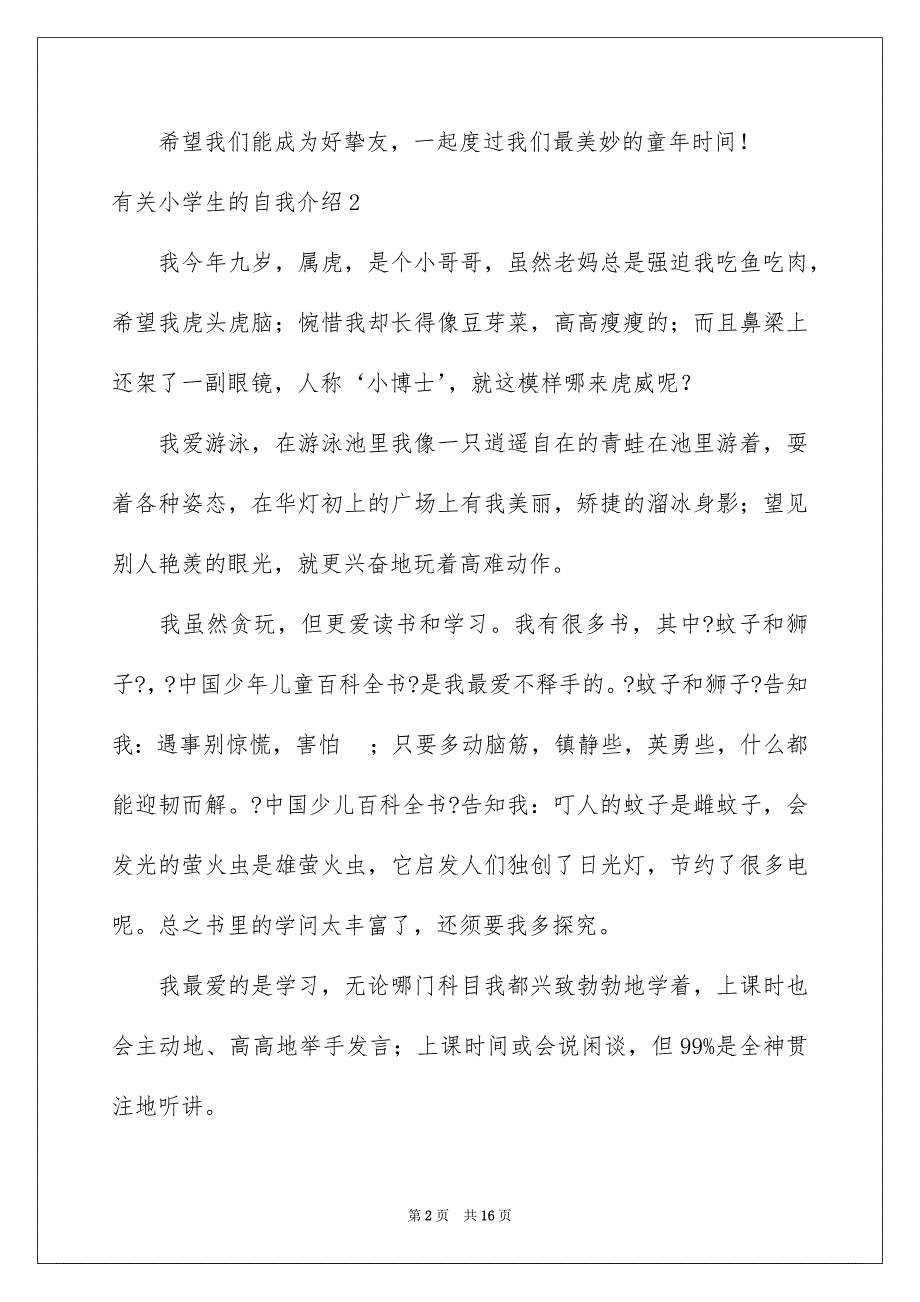 希望我们能成为好挚友，一起度过我们最美妙的童年时间！
有关小学生的自我介绍2
我今年九岁，属虎，是个小哥哥，虽然老妈总是强迫我吃鱼吃肉，
希望我虎头虎脑；惋惜我却长得像豆芽菜，高高瘦瘦的；而且鼻梁上
还架了一副眼镜，人称‘小博士’，就这模样哪来虎威呢？
我爱游泳，在游泳池里我像一只逍遥自在的青蛙在池里游着，耍
着各种姿态，在华灯初上的广场上有我美丽，矫捷的溜冰身影；望见
别人艳羡的眼光，就更兴奋地玩着高难动作。
我虽然贪玩，但更爱读书和学习。我有很多书，其中?蚊子和狮
子?，?中国少年儿童百科全书?是我最爱不释手的。?蚊子和狮子?告知
我：遇事别惊慌，害怕　；只要多动脑筋，镇静些，英勇些，什么都
能迎韧而解。?中国少儿百科全书?告知我：叮人的蚊子是雌蚊子，会
发光的萤火虫是雄萤火虫，它启发人们独创了日光灯，节约了很多电
呢。总之书里的学问太丰富了，还须要我多探究。
我最爱的是学习，无论哪门科目我都兴致勃勃地学着，上课时也
会主动地、高高地举手发言；上课时间或会说闲谈，但99%是全神贯
注地听讲。
第 2 页 共 16 页